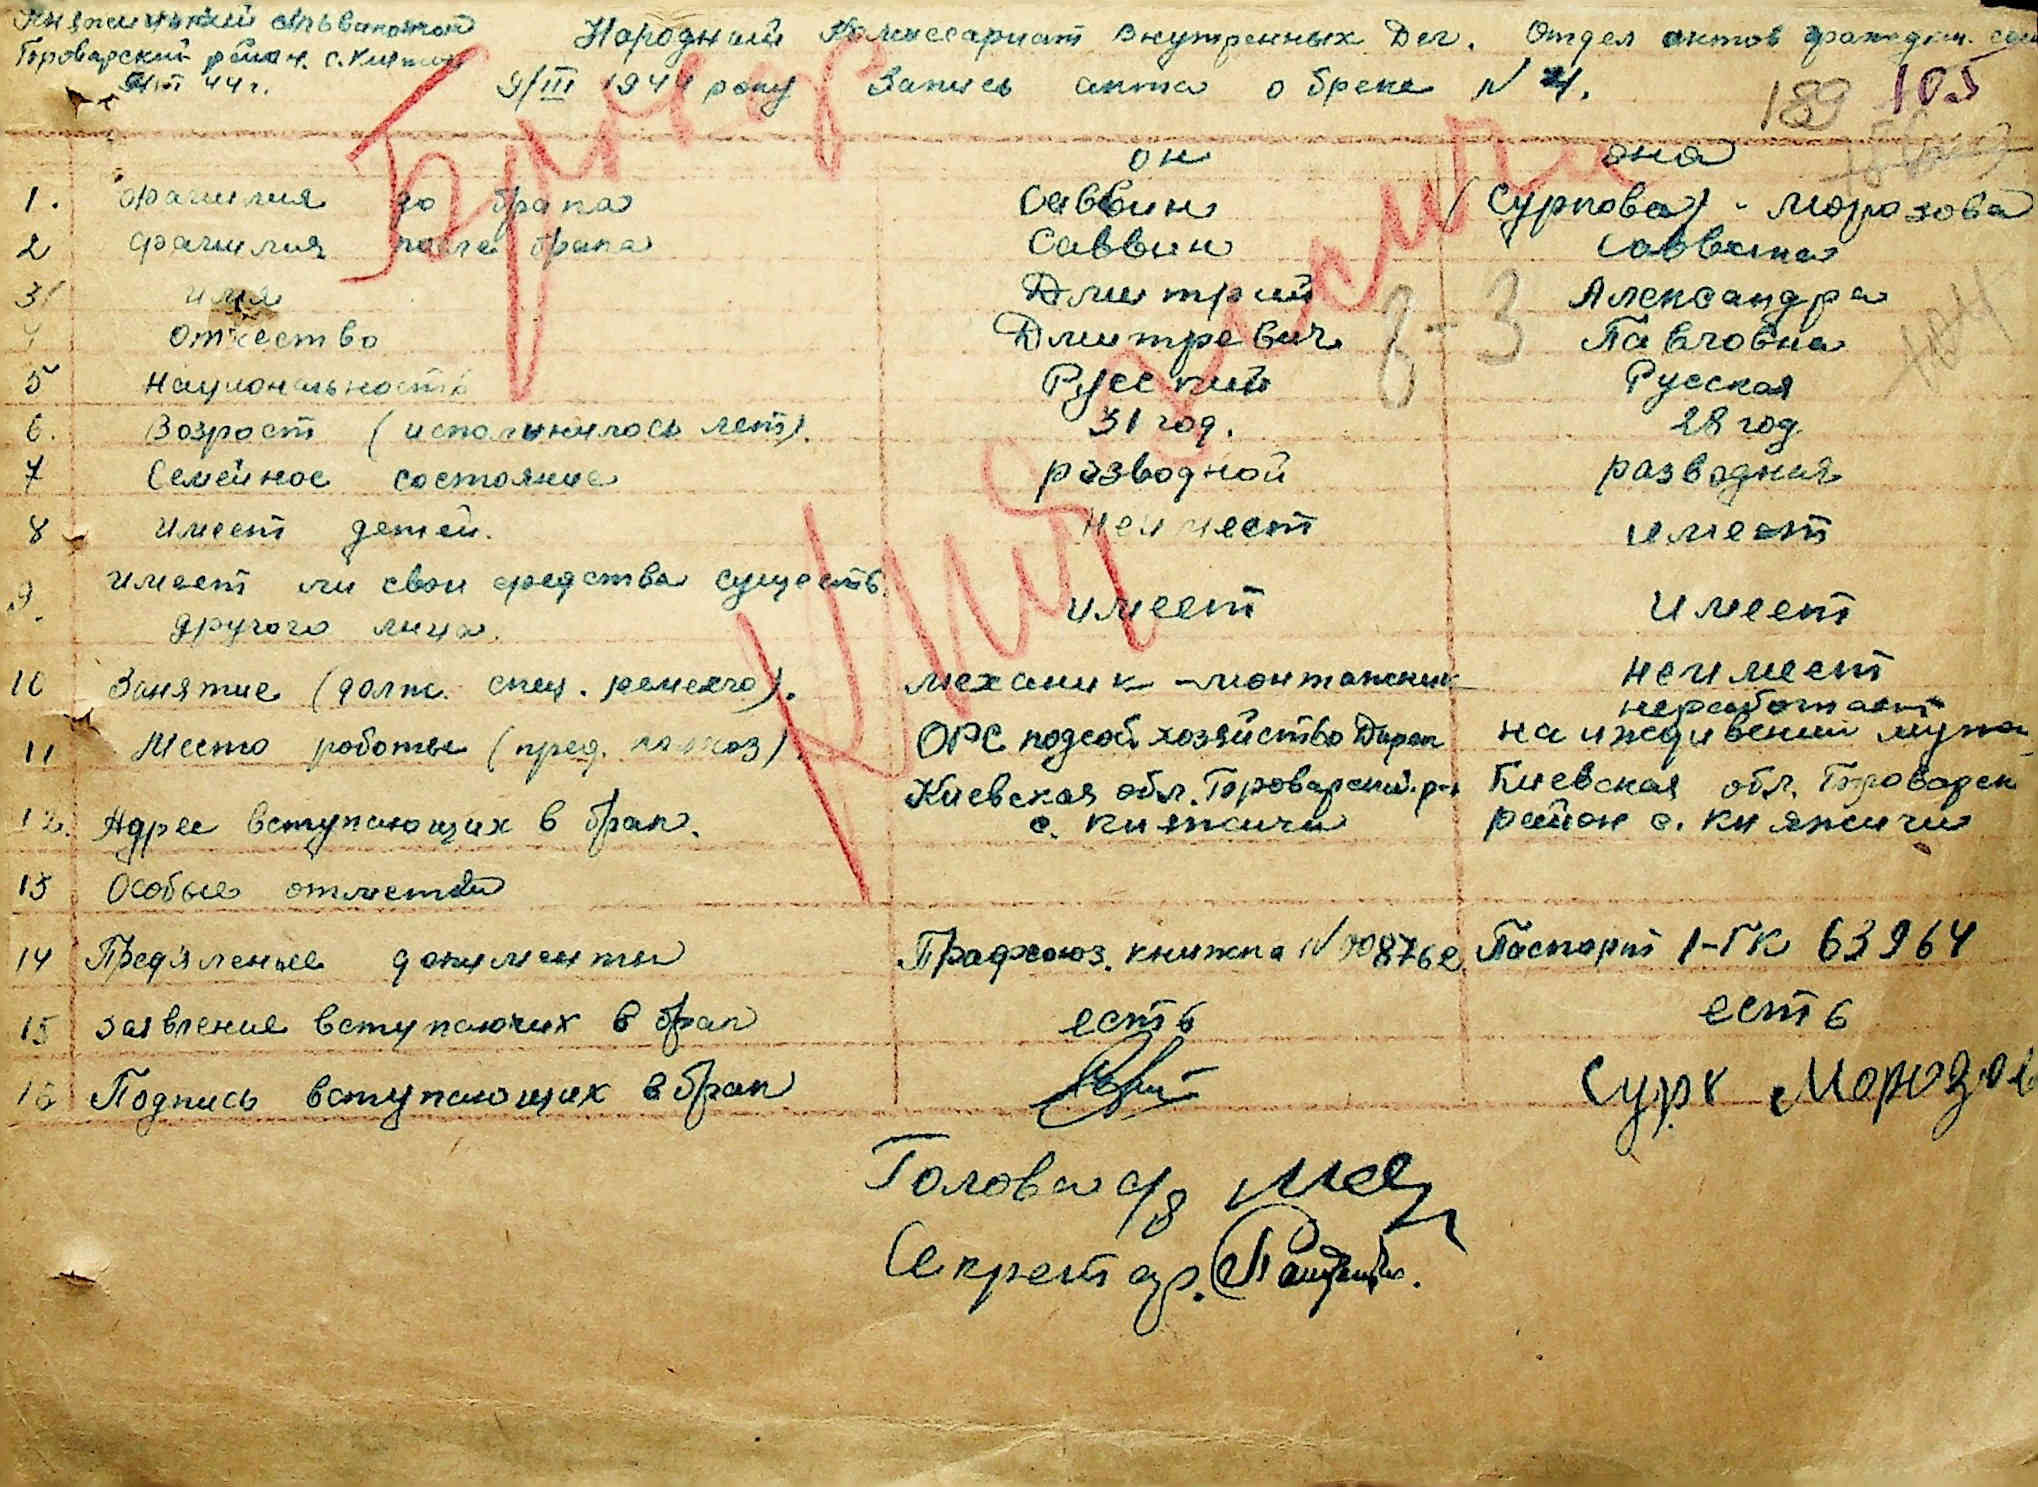 Народний Комиссариат Внутренных Дел. Отдел актов гражедан. сос
Броварский район. с. Княжич
9/III 44 г.
9/III 1944 року Запись акта о браке N 4.
189 105
он она
1. фамилия до брака Саввин (Суркова) - Морозова
2 фамилия после брака Саввин Саввина
3 имя Дмитрий Александра
4 Отчество Дмитревич Павловна
8-3
5 Национальность Русский Русская
6. Возраст (исполнилось лет). 31 год. 28 год
7 Семейное состояние разводной разводная
8 Имеет детей. неимеет имеет
9. имеет ли свои средства существ.
другого лица. имеет имеет
10 Занятие (долж. спец. ремесло). механик-монтажник неимеет
неработает
11 Место работы (пред. колхоз). ОРС подсоб. хозяйство Дарк на иждивении мужа
12. Адрес вступающих в брак. Киевская обл. Броварский р-н Киевская обл. Броварск
с. Княжичи район с. Княжичи
13 Особые отметки
14 Предяленые документы Профсоюз. книжка N 908762 Паспорт 1-ГК 63964
15 Заявление вступаючих в брак есть есть
16 Подпись вступающих в брак Сурк Морозов
Голова с/р
Секретар.
Бровар
Княжичи